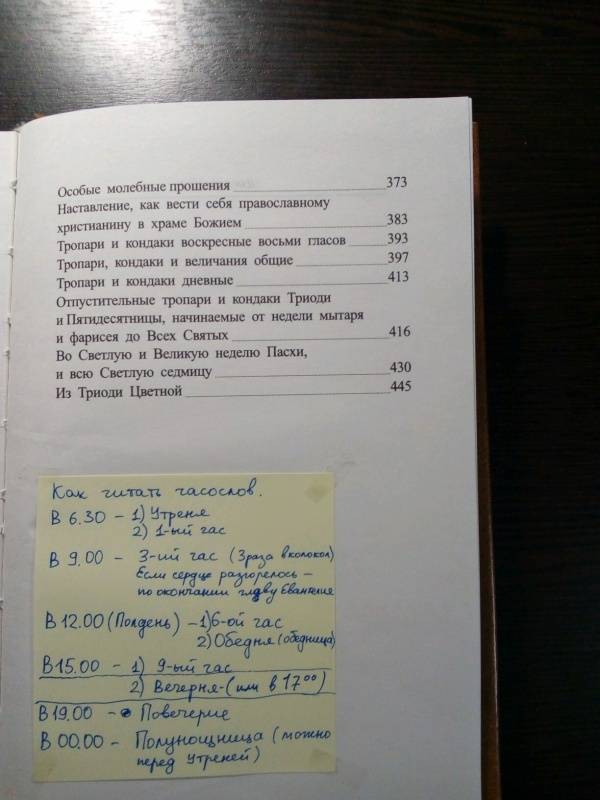 Особые молебные прошения 373
Наставление, как вести себя православному
христианину в храме Божием 383
Тропари и кондаки воскресные восьми гласов 393
Тропари, кондаки и величания общие 397
Тропари и кондаки дневные 413
Отпустительные тропари и кондаки Триоди
и Пятидесятницы, начинаемые от недели мытаря
и фарисея до Всех Святых 416
Во Светлую и Великую неделю Пасхи,
и всю Светлую седмицу 430
Из Триоди Цветной 445
Как читать часослов.
В 6.30 – 1) Утреня
2) 1-ый час
В 9.00 – 3-ий час (3 раза в колокол)
Если сердце разгорелось –
по окончании главу Евангелия
В 12.00 (Полдень) – 1) 6-ой час
2) Обедня (обедница)
В 15.00 – 1) 9-ый час
2) Вечерня - (или в 17⁰⁰)
В 19.00 – Повечерие
В 00.00 – Полунощница (можно
перед Утреней)